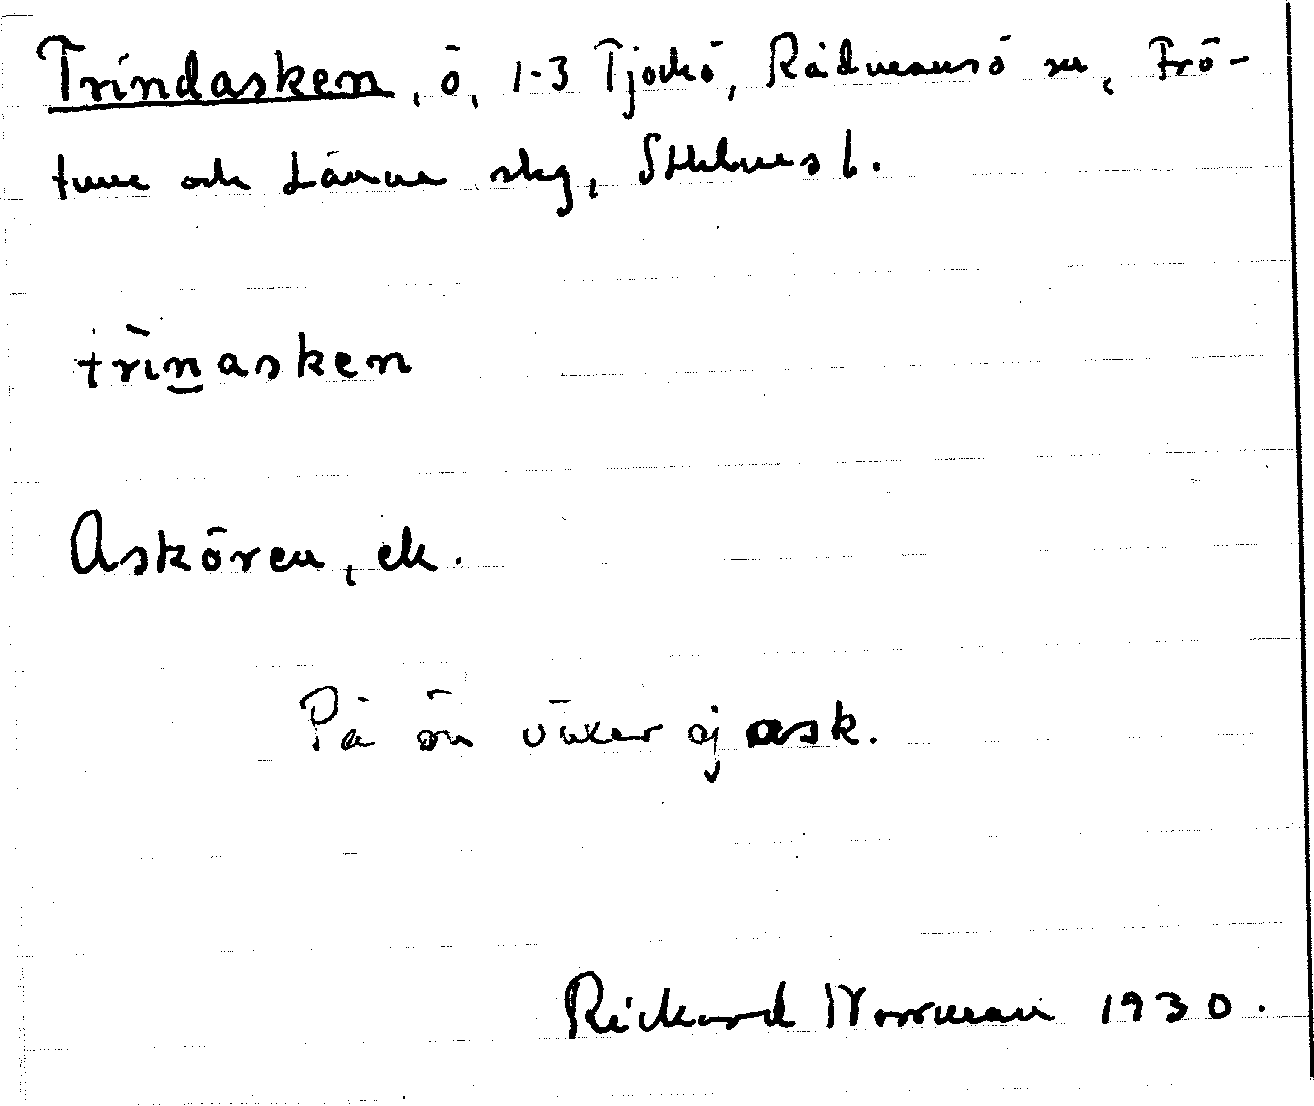 Trindasken, ö, 1-3 Tjockö, Rådmansö sn, Frö-
tuna och Länna skg, Sthlms l.
trìnasken
Askören, ek.
På ön växer ej ask.
Rickard Norrman 1930.